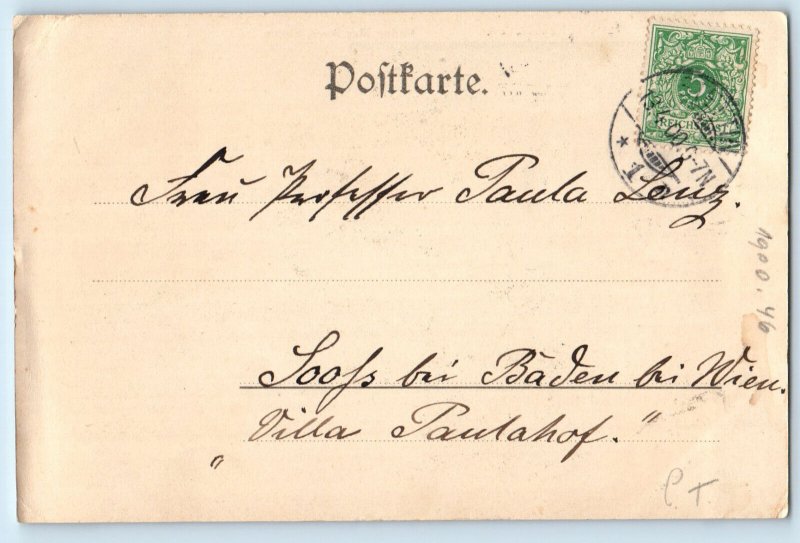 Postkarte.
5
REICHSPOST
6-7N
* 1
Frau Professor Paula Lenz.
Sooss bei Baden bei Wien.
„Villa Paulahof.“
1900.46